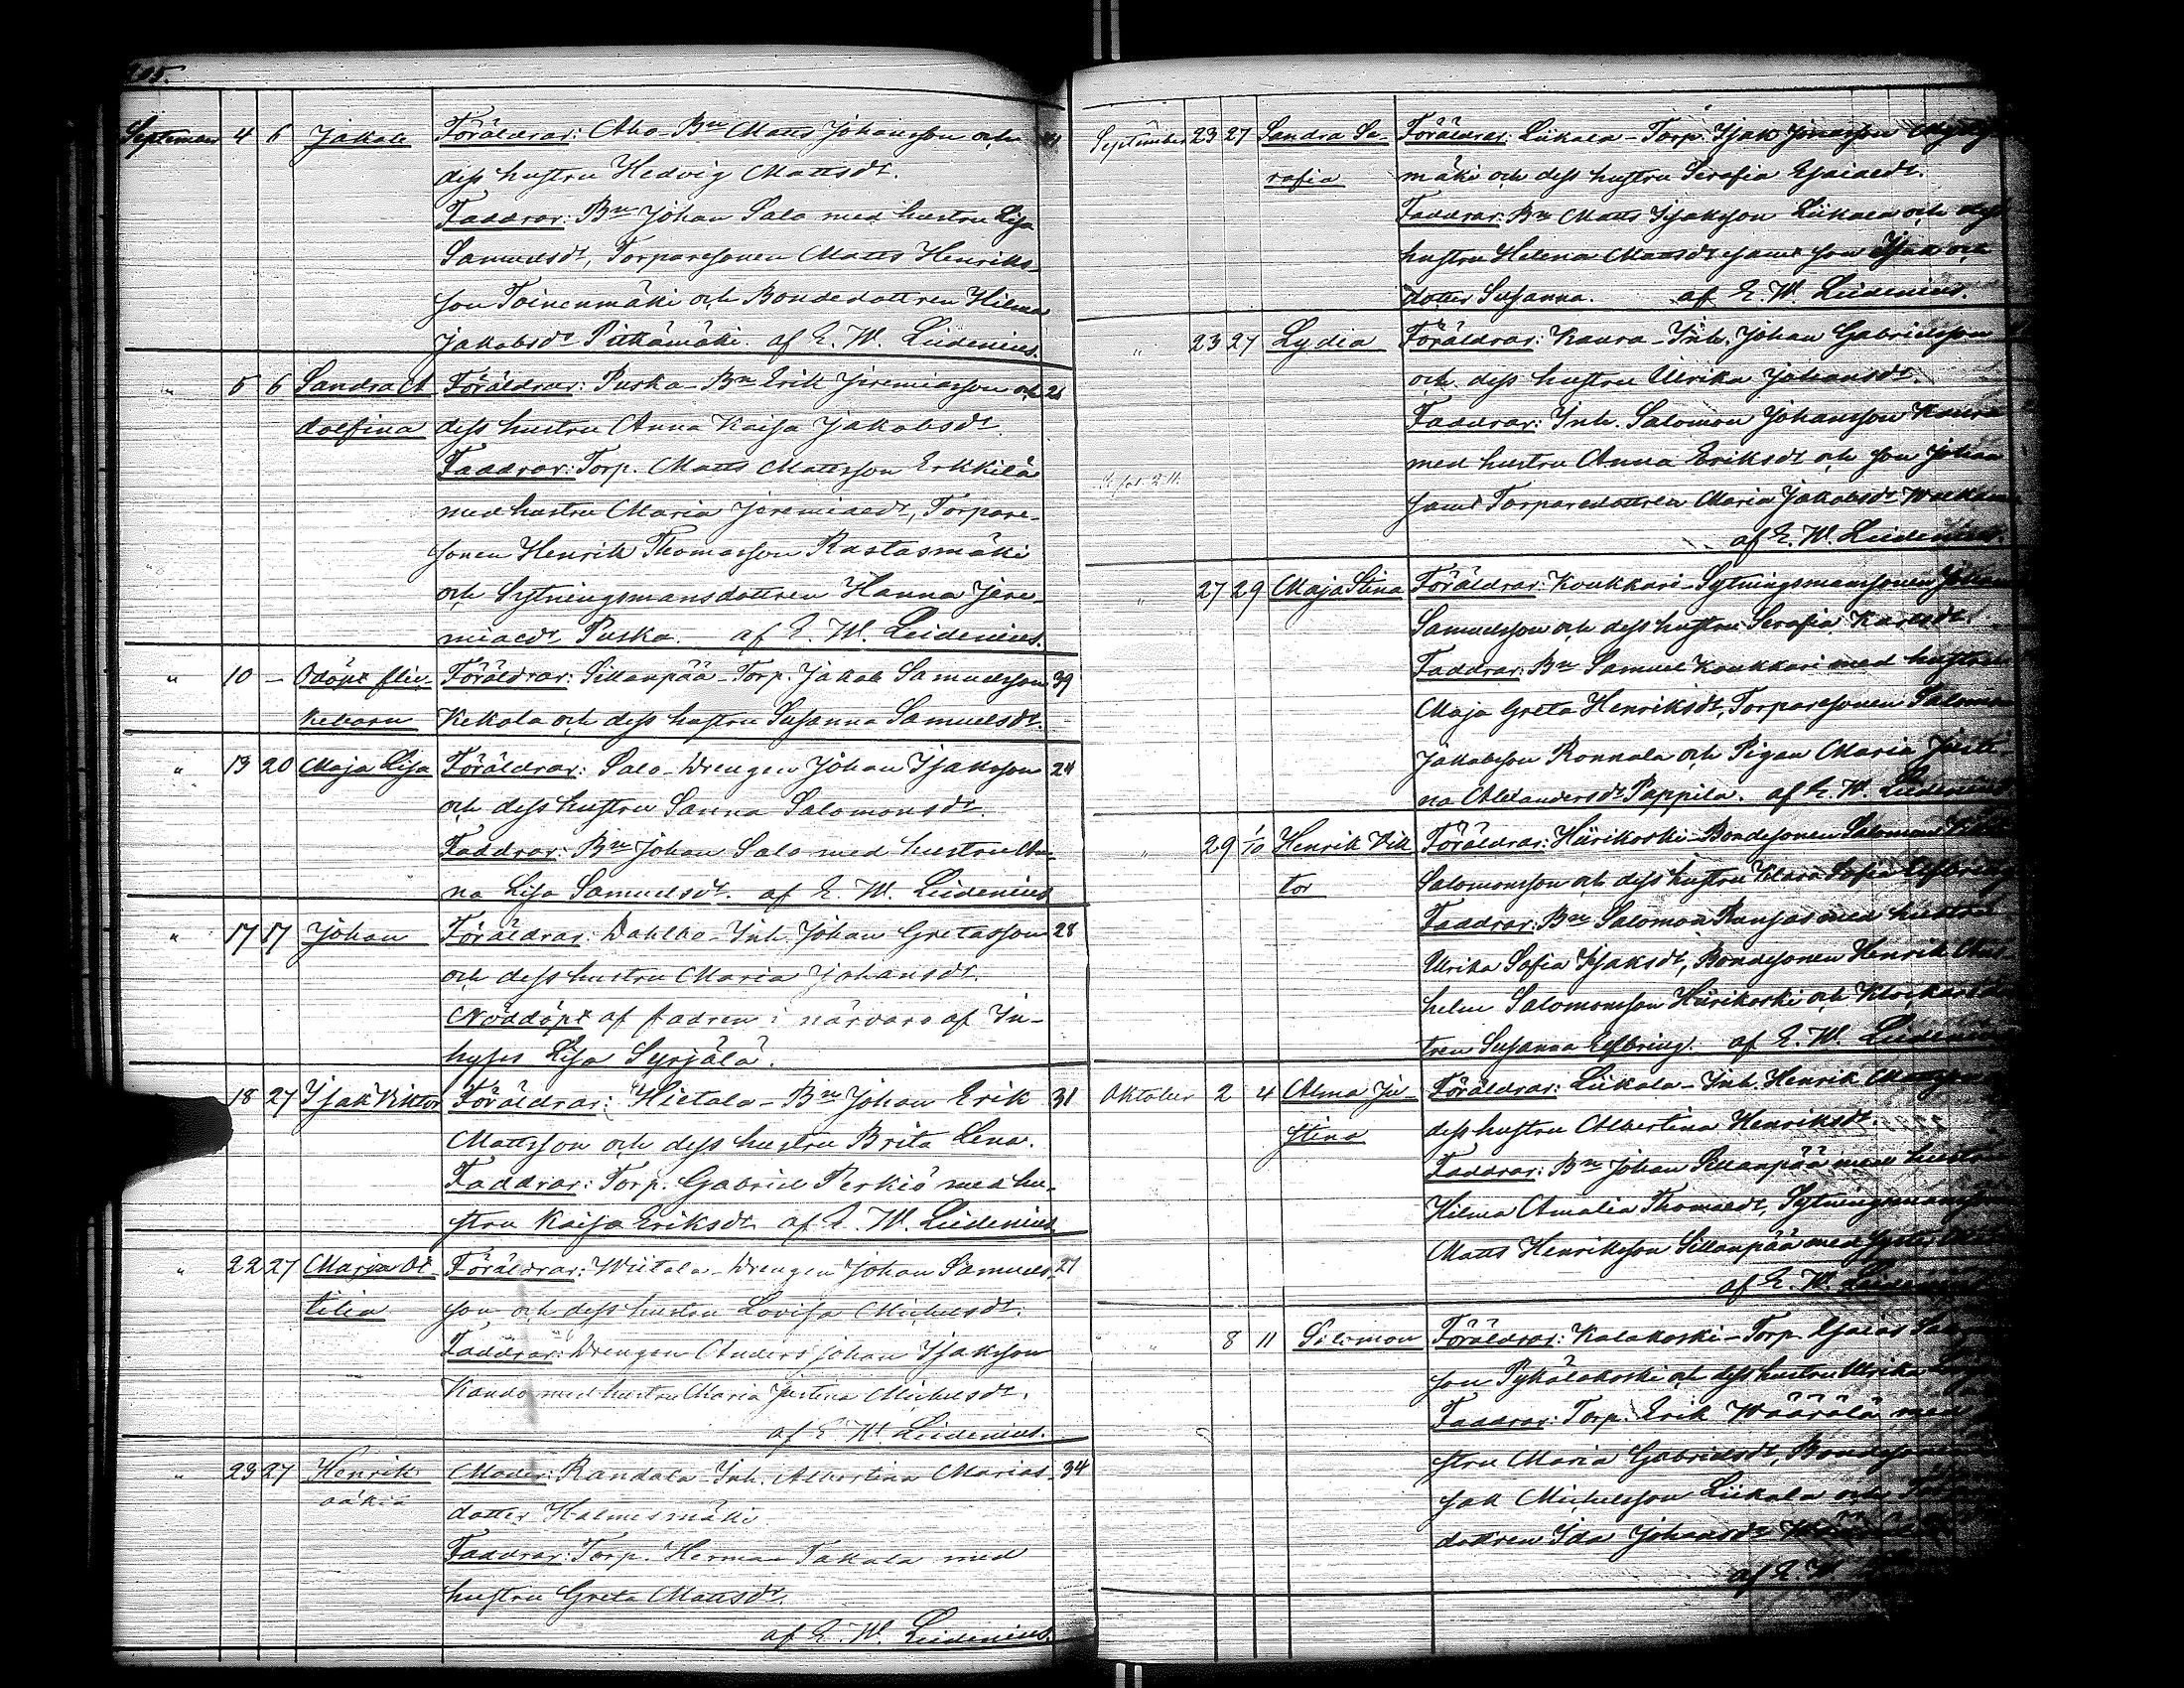 205.
September 4 6 Jakob Föräldrar: Aho-Bn Matts Johansson och 41
dess hustru Hedvig Mattsdr.
Faddrar: Bn Johan Salo med hustru Lisa
Samuelsdr, Torparesonen Matts Henriks-
son Toinenmäki och Bondedottren Hilma
Jakobsdr Pitkämäki. af E. W. Lidenius.
" 5 6 Sandra A Föräldrar: Puska-Bn Erik Jeremiasson och 28
dolfina dess hustru Anna Kaisa Jakobsdr.
Faddrar: Torp. Matts Mattsson Erkkilä
med hustru Maria Jeremiaedr, Torpare-
sonen Henrik Thomasson Rastasmäki
och Sytningsmansdottren Hanna Jere-
miaedr Puska. af E. W. Lidenius.
" 10 - Odöpt flic- Föräldrar: Sillanpää-Torp. Jakob Samuelsson 39
kebarn Kekola och dess hustru Susanna Samuelsdr.
" 13 20 Maja Lisa Föräldrar: Salo-Drengen Johan Isaksson 24
och dess hustru Sanna Salomonsdr.
Faddrar: Bn Johan Salo med hustru An-
na Lisa Samuelsdr. af E. W. Lidenius
" 17 17 Johan Föräldrar: Dahlbo-Inh. Johan Gretasson 28
och dess hustru Maria Johansdr.
Nöddöpt af fadren i närvaro af In-
hyses Lisa Syrjälä.
18 27 Isak Viktor Föräldrar: Hietala-Bn Johan Erik 31
Mattsson och dess hustru Brita Lena.
Faddrar: Torp. Gabriel Perkiö med hu-
stru Kaisa Eriksdr. af E. W. Lidenius
" 22 27 Maria Ot- Föräldrar: Wiitala-Drengen Johan Samuels- 21
tilia son och dess hustru Lovisa Michelsdr.
Faddrar: Drengen Anders Johan Isaksson
Kando med hustru Maria Justina Michelsdr.
af E. W. Lidenius.
" 23 27 Henrik Moder: Randala-Inh. Albertina Marias- 34
oäkta dotter Halmesmäki
Faddrar: Torp. Herman Takala med
hustru Greta Mattsdr.
af E. W. Lidenius.
September 23 27 Sandra Se- Föräldrar: Liikala-Torp. Isak Jonasson
rafia mäki och dess hustru Serafia Esaiaedr.
Faddrar: Bn Matts Isaksson Liikala och dess
hustru Helena Mattsdr samt son Isak och
dotter Susanna. af E. W. Lidenius.
" 23 27 Lydia Föräldrar: Kaura-Inh. Johan Gabrielsson
och dess hustru Ulrika Johansdr.
Faddrar: Inh. Salomon Johansson Kaura
med hustru Anna Eriksdr och son Johan
samt Torparedottren Maria Jakobsdr
af E. W. Lidenius.
" 27 29 Maja Stina Föräldrar: Koukkari-Sytningsmanssonen Johan
Samuelsson och dess hustru Serafia Karlsdr.
Faddrar: Bn Samuel Koukkari med hustru
Maja Greta Henriksdr, Torparesonen Salomon
Jakobsson Ronkala och Pigan Maria Justi-
na Alexandersdr Pappila. af E. W. Lidenius
" 29 1/10 Henrik Vik Föräldrar: Hiirikoski-Bondesonen Salomon
tor Salomonsson och dess hustru Klara Sofia Elfbring.
Faddrar: Bn Salomon med hustru
Ulrika Sofia Isaksdr, Bondesonen Henrik
helm Salomonsson Hiirikoski och
tren Susanna Elfbring. af E. W. Lidenius
Oktober 2 4 Alma Ju- Föräldrar: Liikala-Inh. Henrik
stina dess hustru Albertina Henriksdr.
Faddrar: Bn Johan Sillanpää med hustru
Hilma Amalia Thomaedr, Sytningsmanssonen
Matts Henriksson Sillanpää med syster
af E. W. Lidenius
" 8 11 Salomon Föräldrar: Kalakoski-Torp. Esaias
son Pykälakoski och dess hustru Ulrika
Faddrar: Torp. Erik Määrälä med
stru Maria Gabrielsdr,
sak Michelsson Liikala och
dottren Ida Johansdr
af E. W.